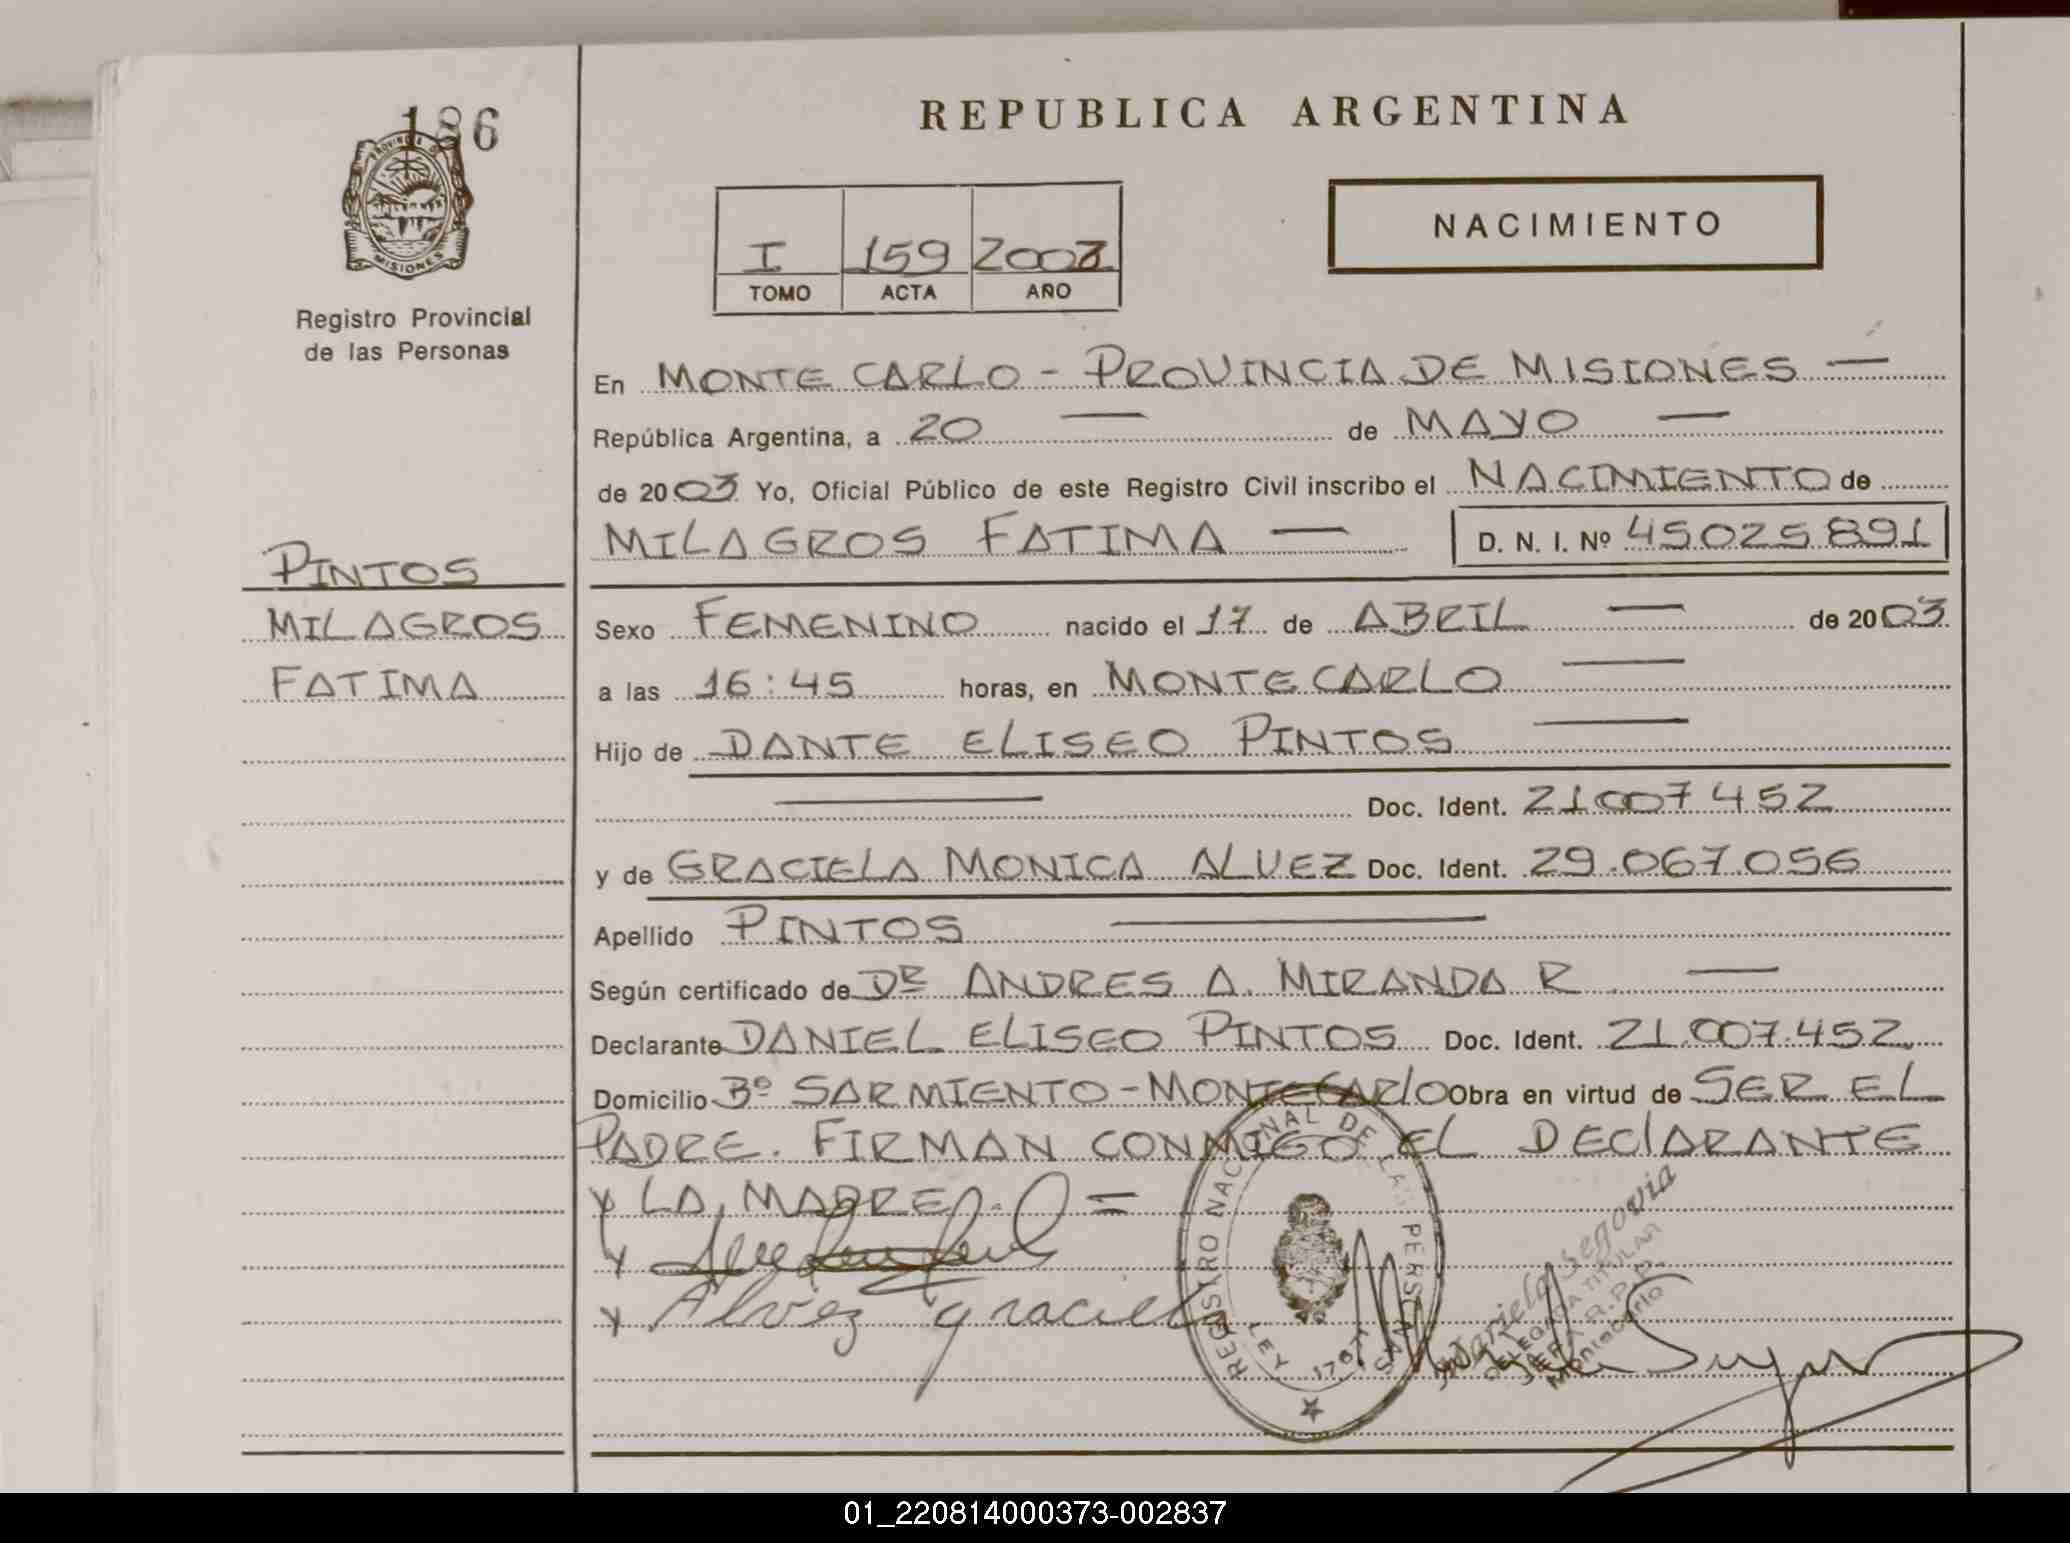 186
PROVINCIA DE
MISIONES
Registro Provincial
de las Personas
PINTOS
MILAGROS
FATIMA
REPUBLICA ARGENTINA
I 159 2003
TOMO ACTA AÑO
NACIMIENTO
En MONTE CARLO - PROVINCIA DE MISIONES —
República Argentina, a 20 — de MAYO —
de 2003 Yo, Oficial Público de este Registro Civil inscribo el NACIMIENTO de
MILAGROS FATIMA — D. N. I. Nº 45025891
Sexo FEMENINO nacido el 17 de ABRIL — de 2003
a las 16:45 horas, en MONTECARLO —
Hijo de DANTE ELISEO PINTOS —
— Doc. Ident. 21007452
y de GRACIELA MONICA ALVEZ Doc. Ident. 29.067.056
Apellido PINTOS —
Según certificado de DR ANDRES A. MIRANDA R —
Declarante DANIEL ELISEO PINTOS Doc. Ident. 21.007.452
Domicilio Bº SARMIENTO - MONTECARLO Obra en virtud de SER EL
PADRE. FIRMAN CONMIGO EL DECLARANTE
Y LA MADRE. =
Alvez graciela
REGISTRO NACIONAL DE LAS PERSONAS
LEY 17671
Mariela Segovia
DELEGADA TITULAR
JEFA R.P.P.
Montecarlo
01_220814000373-002837